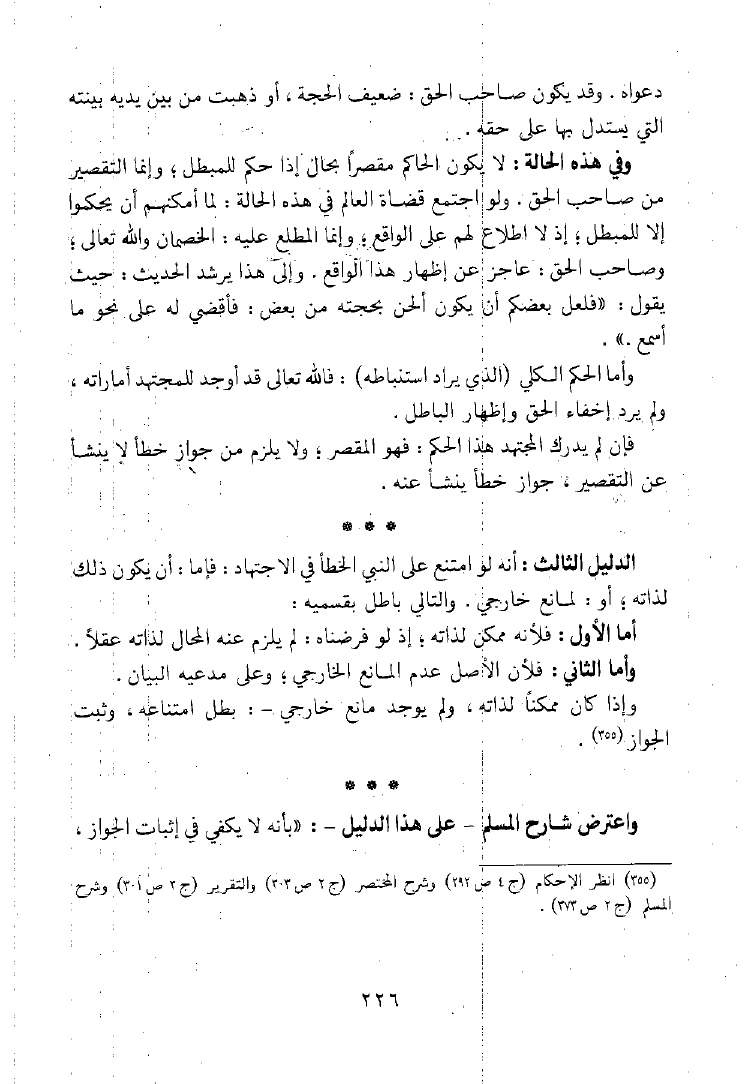 دعواه . وقد يكون صاحب الحق : ضعيف الحجة ، أو ذهبت من بين يديه بينته
التي يستدل بها على حقه .
وفي هذه الحالة : لا يكون الحاكم مقصراً بحال إذا حكم للمبطل ؛ وإنما التقصير
من صاحب الحق . ولو اجتمع قضاة العالم في هذه الحالة : لما أمكنهم أن يحكموا
إلا للمبطل ؛ إذ لا اطلاع لهم على الواقع ؛ وإنما المطلع عليه : الخصمان والله تعالى ؛
وصاحب الحق : عاجز عن إظهار هذا الواقع . وإلى هذا يرشد الحديث : حيث
يقول : «فلعل بعضكم أن يكون ألحن بحجته من بعض : فأقضي له على نحو ما
أسمع .» .
وأما الحكم الكلي (الذي يراد استنباطه) : فالله تعالى قد أوجد للمجتهد أماراته ،
ولم يرد إخفاء الحق وإظهار الباطل .
فإن لم يدرك المجتهد هذا الحكم : فهو المقصر ؛ ولا يلزم من جواز خطأ لا ينشأ
عن التقصير ، جواز خطأ ينشأ عنه .
* * *
الدليل الثالث : أنه لو امتنع على النبي الخطأ في الاجتهاد : فإما : أن يكون ذلك
لذاته ؛ أو : لمانع خارجي . والتالي باطل بقسميه :
أما الأول : فلأنه ممكن لذاته ؛ إذ لو فرضناه : لم يلزم عنه المحال لذاته عقلاً .
وأما الثاني : فلأن الأصل عدم المانع الخارجي ؛ وعلى مدعيه البيان .
وإذا كان ممكناً لذاته ، ولم يوجد مانع خارجي – : بطل امتناعه ، وثبت
الجواز (٣٥٥) .
* * *
واعترض شارح المسلم – على هذا الدليل – : «بأنه لا يكفي في إثبات الجواز ،
(٣٥٥) انظر الإحكام (ج ٤ ص ٢٩٢) وشرح المختصر (ج ٢ ص ٣٠٣) والتقرير (ج ٣ ص ٣٠١) وشرح
المسلم (ج ٢ ص ٣٧٣) .
٢٢٦